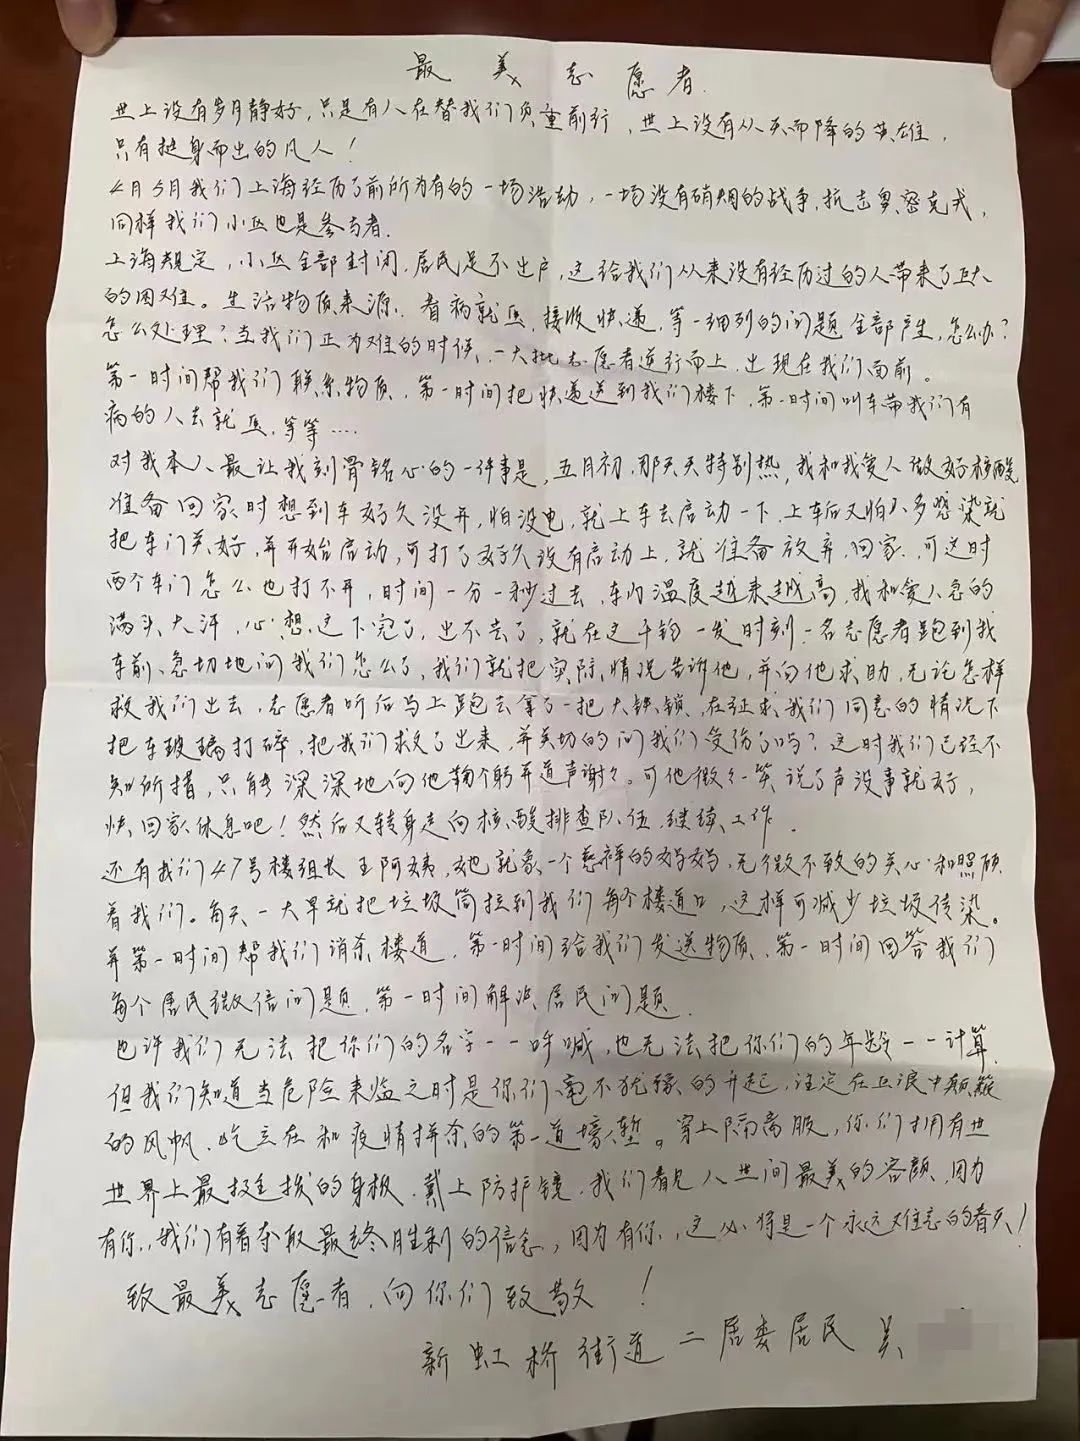 最美志愿者.
世上没有岁月静好,只是有人在替我们负重前行,世上没有从天而降的英雄,
只有挺身而出的凡人!
4月5月我们上海经历了前所为有的一场浩劫,一场没有硝烟的战争,抗击奥密克戎,
同样我们小区也是参与者.
上海规定,小区全部封闭.居民足不出户,这给我们从来没有经历过的人带来了巨大
的困难。生活物质来源.看病就医,接收快递,等一细列的问题全部产生,怎么办?
怎么处理?当我们正为难的时候、一大批志愿者逆行而上,出现在我们面前。
第一时间帮我们联系物质,第一时间把快递送到我们楼下,第一时间叫车带我们有
病的人去就医,等等……
对我本人最让我刻骨铭心的一件事是,五月初,那天天特别热,我和我爱人做好核酸
准备回家时想到车好久没开,怕没电,就上车去启动一下,上车后又怕人多感染就
把车门关好,并开始启动,可打了好久没有启动上,就准备放弃,回家,可这时
两个车门怎么也打不开,时间一分一秒过去,车内温度越来越高,我和爱人急的
满头大汗,心想这下完了,出不去了,就在这千钧一发时刻一名志愿者跑到我
车前、急切地问我们怎么了,我们就把实际情况告诉他,并向他求助,无论怎样
救我们出去,志愿者听后马上跑去拿了一把大铁锁,在征求我们同意的情况下
把车玻璃打碎,把我们救了出来,并关切的问我们受伤了吗?这时我们已经不
知所措,只能深深地向他鞠个躬并道声谢々。可他微々一笑说了声没事就好,
快回家休息吧!然后又转身走向核酸排查队伍,继续工作.
还有我们47号楼组长王阿姨,她就象一个慈祥的妈妈,无微不致的关心和照顾
着我们。每天一大早就把垃圾筒拉到我们每个楼道口,这样可减少垃圾传染。
并第一时间帮我们消杀楼道,第一时间给我们发送物质、第一时间回答我们
每个居民微信问题,第一时间解决居民问题.
也许我们无法把你们的名字一一呼喊,也无法把你们的年龄一一计算,
但我们知道当危险来临之时是你们毫不犹豫的升起,注定在巨浪中颠簸
的风帆.屹立在和疫情拼杀的第一道壕堑。穿上隔离服,你们拥有世
世界上最挺拔的身板.戴上防护镜,我们看见人世间最美的容颜,因为
有你,我们有着夺取最终胜利的信念,因为有你,这必将是一个永远难忘的春天!
致最美志愿者,向你们致敬!
新虹桥街道二居委居民吴